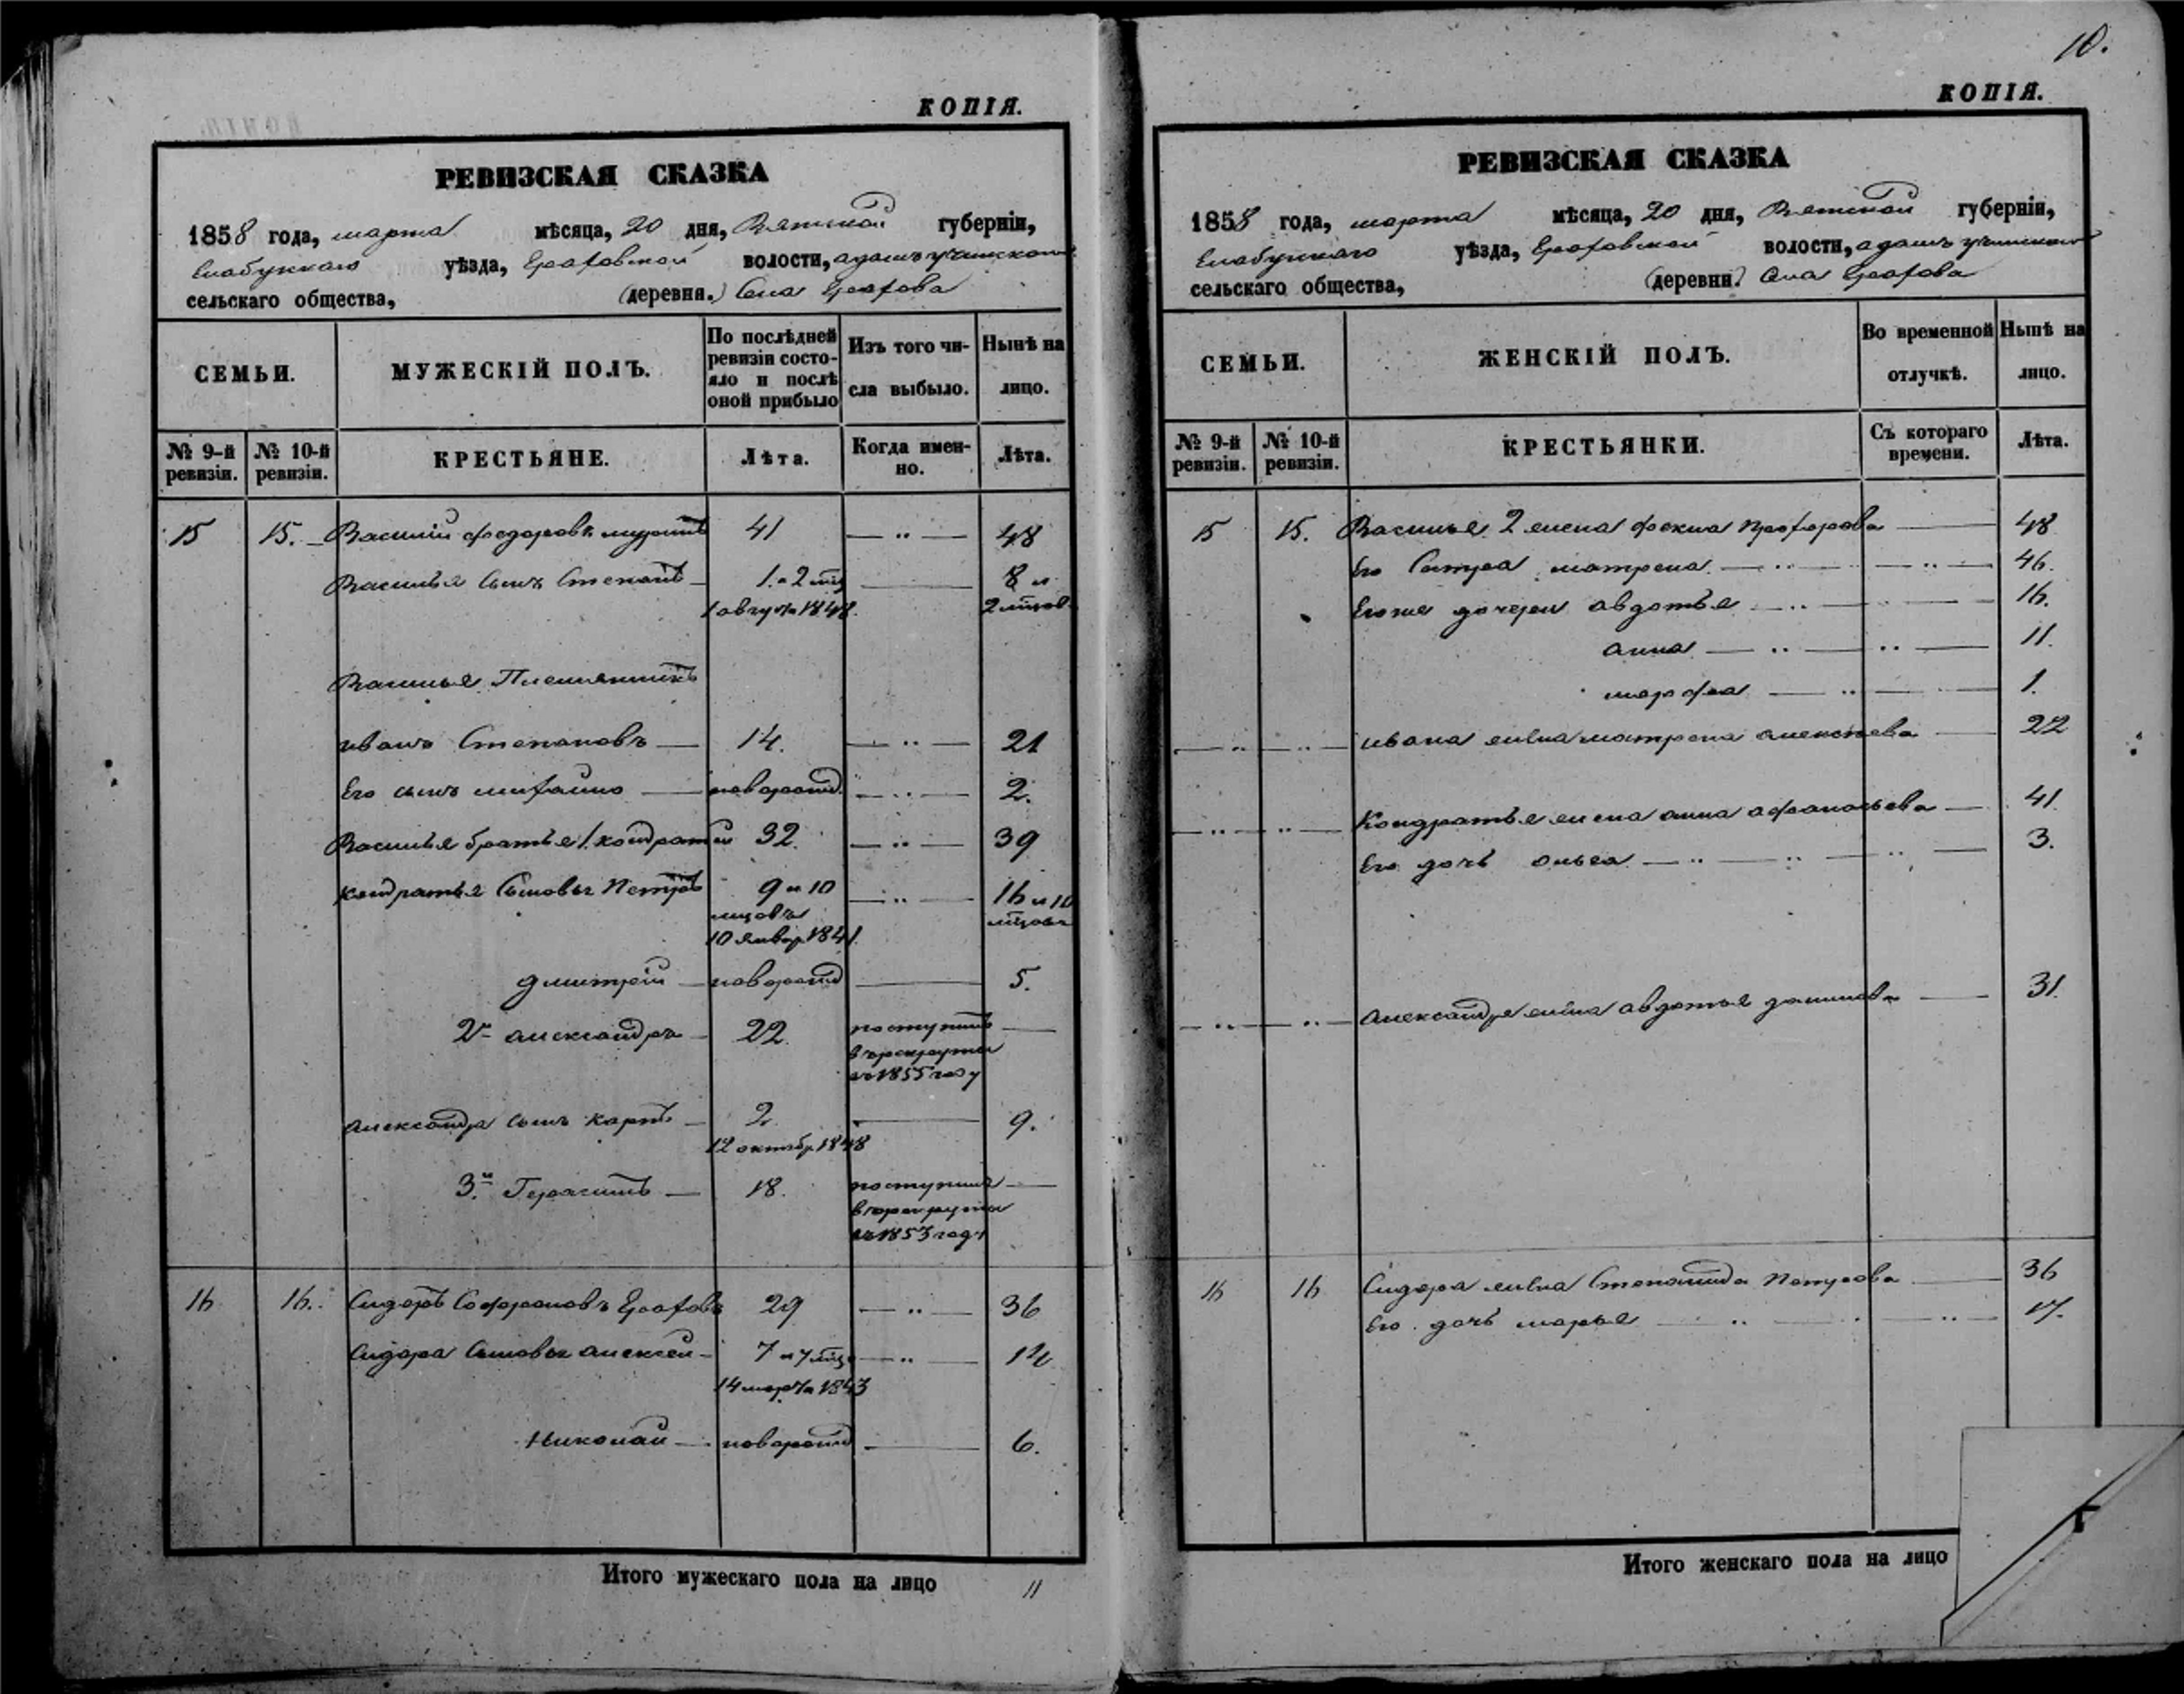 КОПІЯ.
РЕВИЗСКАЯ СКАЗКА
1858 года, марта мѣсяца, 20 дня, Вятской губерніи,
Елабужскаго уѣзда, Граховской волости,
сельскаго общества, (деревня.) Села Грахова
СЕМЬИ. МУЖЕСКІЙ ПОЛЪ. По послѣдней ревизіи состояло и послѣ оной прибыло Изъ того числа выбыло. Нынѣ на лицо.
№ 9-й ревизіи. № 10-й ревизіи. КРЕСТЬЯНЕ. Лѣта. Когда именно. Лѣта.
15 15. Василій Федоровъ 41 — „ — 48
Василья сынъ Степанъ 1. и 2 мц 8 и
1 августа 1848. 2 мцов
Василья Племянникъ
Иванъ Степановъ — 14. — „ — 21
Его сынъ Михайло — новорожд. — „ — 2.
Василья братья 1. Кондратий 32. — „ — 39
Кондратья Сыновья Петръ 9 и 10 — „ — 16 и 10
мцовъ мцовъ
10 январ 1841.
Дмитрій — новорожд — 5.
2й Александръ — 22. поступилъ —
в рекруты
въ 1855 году
Александра сынъ Карпъ — 2. — 9.
12 октябр 1848
3.й Герасимъ — 18. поступилъ —
в рекруты
въ 1853 году
16 16. Сидоръ Софроновъ Граховъ 29 — „ — 36
Сидора Сыновья Алексей — 7 и 7 мцо — „ — 14
14 марта 1843
Николай — новорожд — 6.
Итого мужескаго пола на лицо 11
10.
КОПІЯ.
РЕВИЗСКАЯ СКАЗКА
1858 года, марта мѣсяца, 20 дня, Вятской губерніи,
Елабужскаго уѣзда, Граховской волости,
сельскаго общества, (деревни.) Села Грахова
СЕМЬИ. ЖЕНСКІЙ ПОЛЪ. Во временной отлучкѣ. Нынѣ на лицо.
№ 9-й ревизіи. № 10-й ревизіи. КРЕСТЬЯНКИ. Съ котораго времени. Лѣта.
15 15. Василья 2 жена Фекла — 48
Его Матрена — „ — „ — 46.
Егоже дочери Авдотья — „ — 16.
Анна — „ — „ — 11.
Марфа — „ — 1.
— „ — „ — Ивана жена Матрена Алексѣева — 22
— „ — „ — Кондратья жена Анна Афанасьева — 41.
Его дочь Ольга — „ — „ — „ — 3.
— „ — „ — Александра жена Авдотья Данилова — 31.
16 16 Сидора жена Степанида Петрова — 36
Его дочь Марья — „ — „ — 17.
Итого женскаго пола на лицо